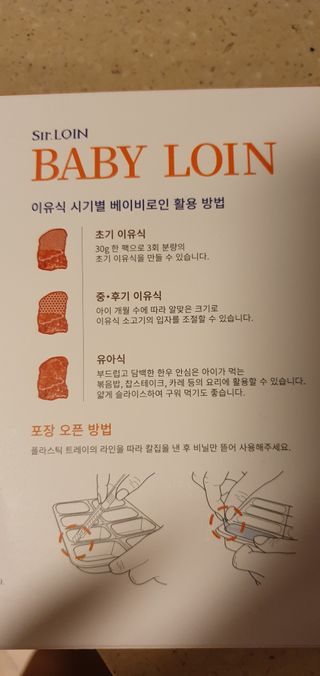 Sir.LOIN
BABY LOIN
이유식 시기별 베이비로인 활용 방법
초기 이유식
30g 한 팩으로 3회 분량의
초기 이유식을 만들 수 있습니다.
중•후기 이유식
아이 개월 수에 따라 알맞은 크기로
이유식 소고기의 입자를 조절할 수 있습니다.
유아식
부드럽고 담백한 한우 안심은 아이가 먹는
볶음밥, 찹스테이크, 카레 등의 요리에 활용할 수 있습니다.
얇게 슬라이스하여 구워 먹기도 좋습니다.
포장 오픈 방법
플라스틱 트레이의 라인을 따라 칼집을 낸 후 비닐만 뜯어 사용해주세요.